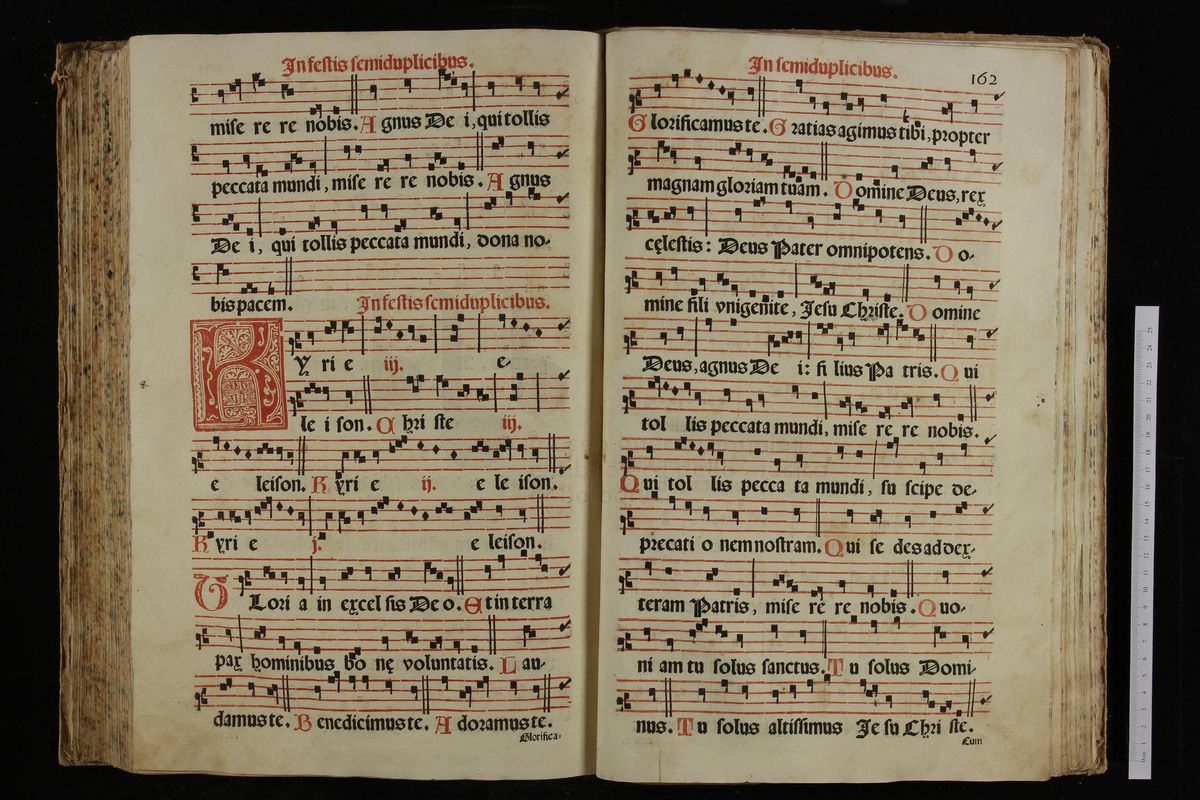 In festis semiduplicibus.
mise re re nobis. A gnus De i, qui tollis
peccata mundi, mise re re nobis. A gnus
De i, qui tollis peccata mundi, dona no-
bis pacem. In festis semiduplicibus.
K y ri e iij. e-
le i son. C hri ste iij.
e leison. K yri e ij. e le ison.
K yri e j. e leison.
G Lori a in excel sis De o. Et in terra
pax hominibus bo nę voluntatis. L au-
damus te. B enedicimus te. A doramus te.
Glorifica-
In semiduplicibus. 162
G lorificamus te. G ratias agimus tibi, propter
magnam gloriam tuam. D omine Deus, rex
cęlestis: Deus Pater omnipotens. D o-
mine fili vnigenite, Jesu Christe. D omine
Deus, agnus De i: fi lius Pa tris. Q ui
tol lis peccata mundi, mise re re nobis.
Q ui tol lis pecca ta mundi, su scipe de-
precati o nem nostram. Q ui se des ad dex-
teram Patris, mise re re nobis. Q uo-
ni am tu solus sanctus. T u solus Domi-
nus. T u solus altissimus Je su Chri ste.
Cum
0 cm 1 2 3 4 5 6 7 8 9 10 11 12 13 14 15 16 17 18 19 20 21 22 23 24 25